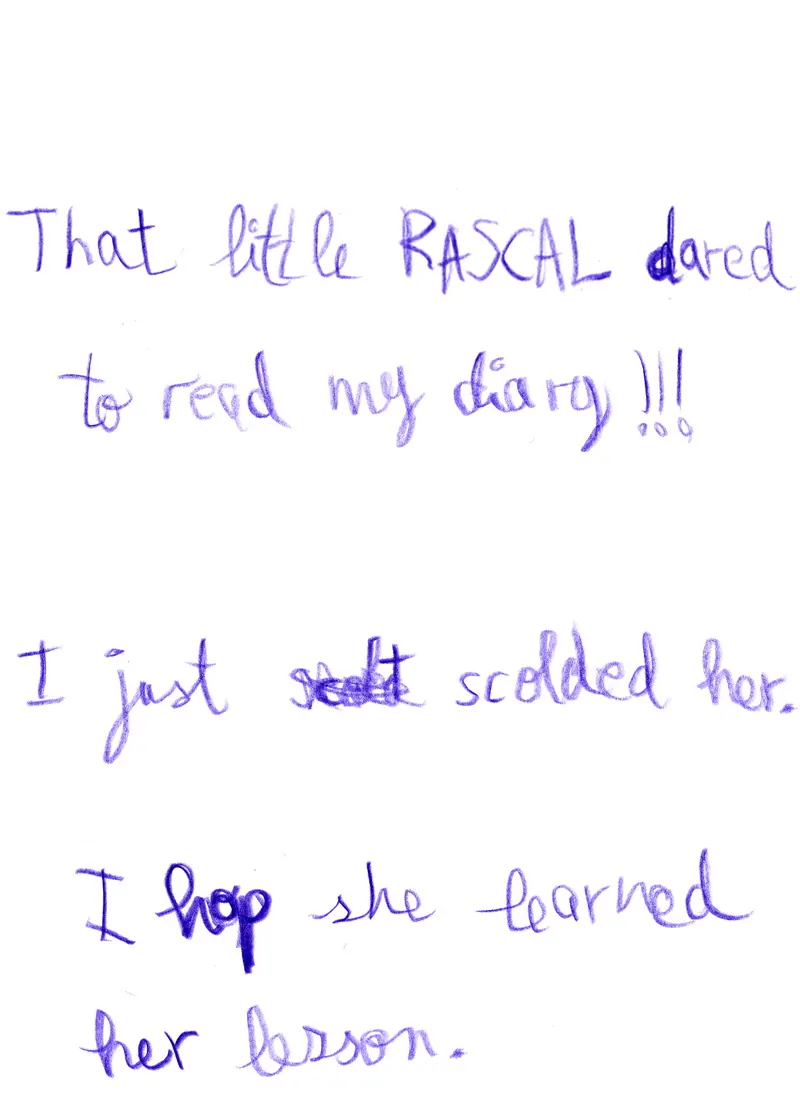 That little RASCAL dared
to read my diary!!!
I just scolded her.
I hop she learned
her lesson.